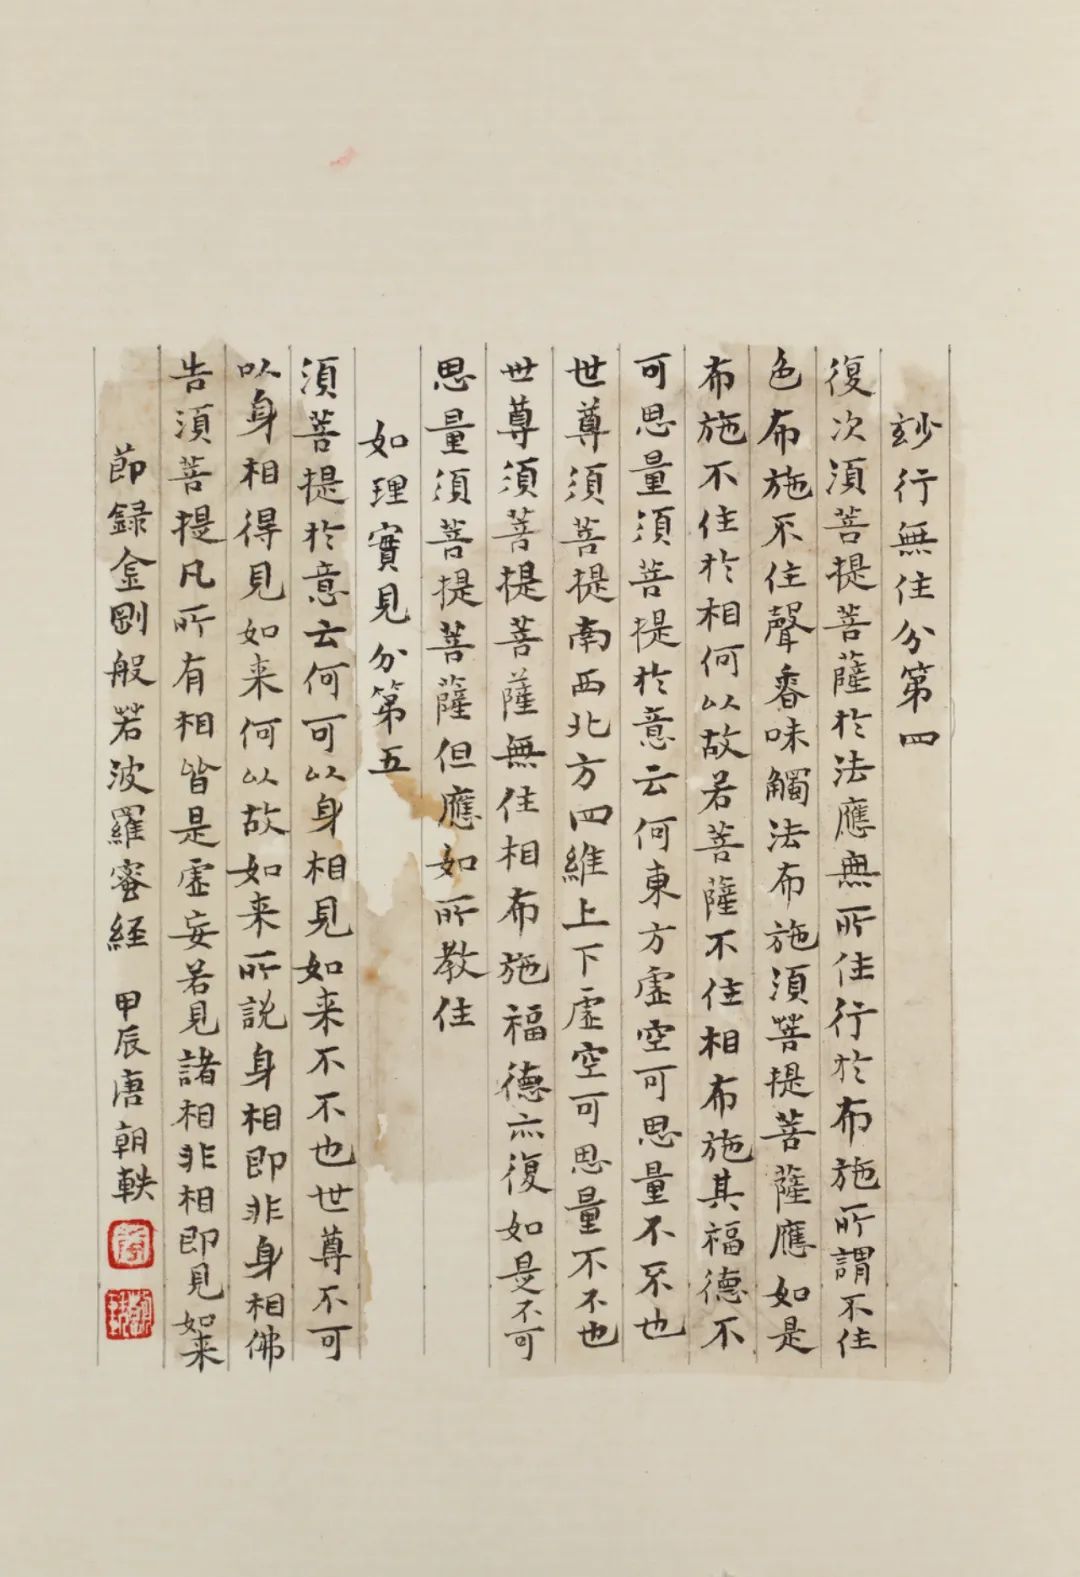 玅行無住分第四
復次須菩提菩薩於法應無所住行於布施所謂不住
色布施不住聲香味觸法布施須菩提菩薩應如是
布施不住於相何以故若菩薩不住相布施其福德不
可思量須菩提於意云何東方虛空可思量不不也
世尊須菩提南西北方四維上下虛空可思量不不也
世尊須菩提菩薩無住相布施福德亦復如是不可
思量須菩提菩薩但應如所教住
如理實見分第五
須菩提於意云何可以身相見如来不不也世尊不可
以身相得見如来何以故如来所說身相即非身相佛
告須菩提凡所有相皆是虛妄若見諸相非相即見如来
節録金剛般若波羅蜜経 甲辰唐朝軼